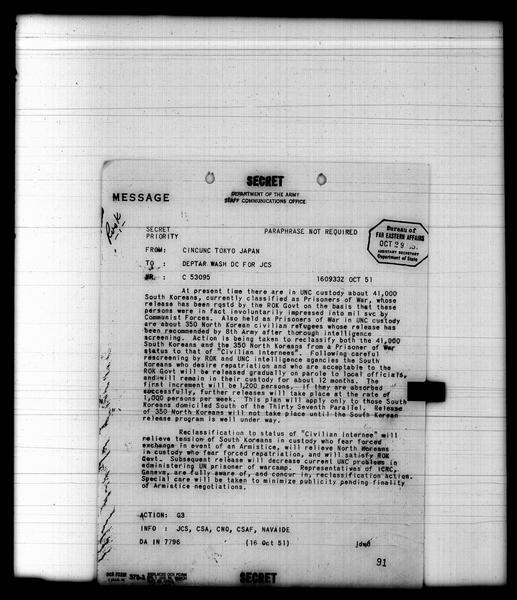 SECRET
DEPARTMENT OF THE ARMY
STAFF COMMUNICATIONS OFFICE
MESSAGE
SECRET
PRIORITY
PARAPHRASE NOT REQUIRED
Bureau of
FAR EASTERN AFFAIRS
OCT 29
ASSISTANT SECRETARY
Department of State
FROM: CINCUNC TOKYO JAPAN
TO : DEPTAR WASH DC FOR JCS
NR: C 53095 160933Z OCT 51
At present time there are in UNC custody about 41,000
South Koreans, currently classified as Prisoners of War, whose
release has been rqstd by the ROK Govt on the basis that these
persons were in fact involuntarily impressed into mil svc by
Communist Forces. Also held as Prisoners of War in UNC custody
are about 350 North Korean civilian refugees whose release has
been recommended by 8th Army after thorough intelligence
screening. Action is being taken to reclassify both the 41,000
South Koreans and the 350 North Koreans from a Prisoner of War
status to that of "Civilian Internees". Following careful
rescreening by ROK and UNC intelligence agencies the South
Koreans who desire repatriation and who are acceptable to the
ROK Govt will be released gradually on parole to local officials,
and will remain in their custody for about 12 months. The
first increment will be 1,200 persons. If they are absorbed
successfully, further releases will take place at the rate of
1,000 persons per week. This plan will apply only to those South
Koreans domiciled South of the Thirty Seventh Parallel. Release
of 350 North Koreans will not take place until the South Korean
release program is well under way.
Reclassification to status of "Civilian Internee" will
relieve tension of South Koreans in custody who fear forced
exchange in event of an Armistice, will relieve North Koreans
in custody who fear forced repatriation, and will satisfy ROK
Govt. Subsequent release will decrease current UNC problems in
administering UN prisoner of warcamp. Representatives of ICRC,
Geneva, are fully aware of, and concur in, reclassification action.
Special care will be taken to minimize publicity pending finality
of Armistice negotiations.
ACTION: G3
INFO : JCS, CSA, CNO, CSAF, NAVAIDE
DA IN 7796 (16 Oct 51)
91
OCS FORM 375-1
SECRET